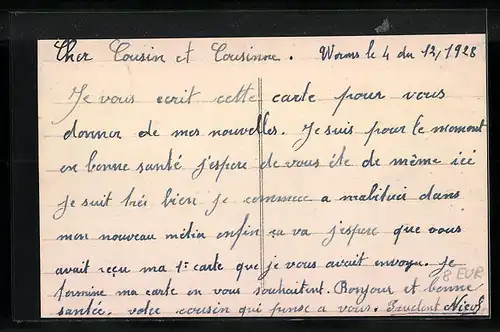 Cher Cousin et Cousinne. Worms le 4 du 12/1928
Je vous ecrit cette carte pour vous
donner de mes nouvelles. Je suis pour le moment
en bonne santé j'espere de vous éte de même ici
je suit tréi bien je commece a m'abituéi dans
mon nouveau métier enfin ça va j'espere que vous
avait reçu ma 1e carte que je vous avait envoyu. Je
termine ma carte en vous souhaitent. Bonjour et bonne
santé. votre cousin qui pense a vous. Prudent Nicol
8 EUR